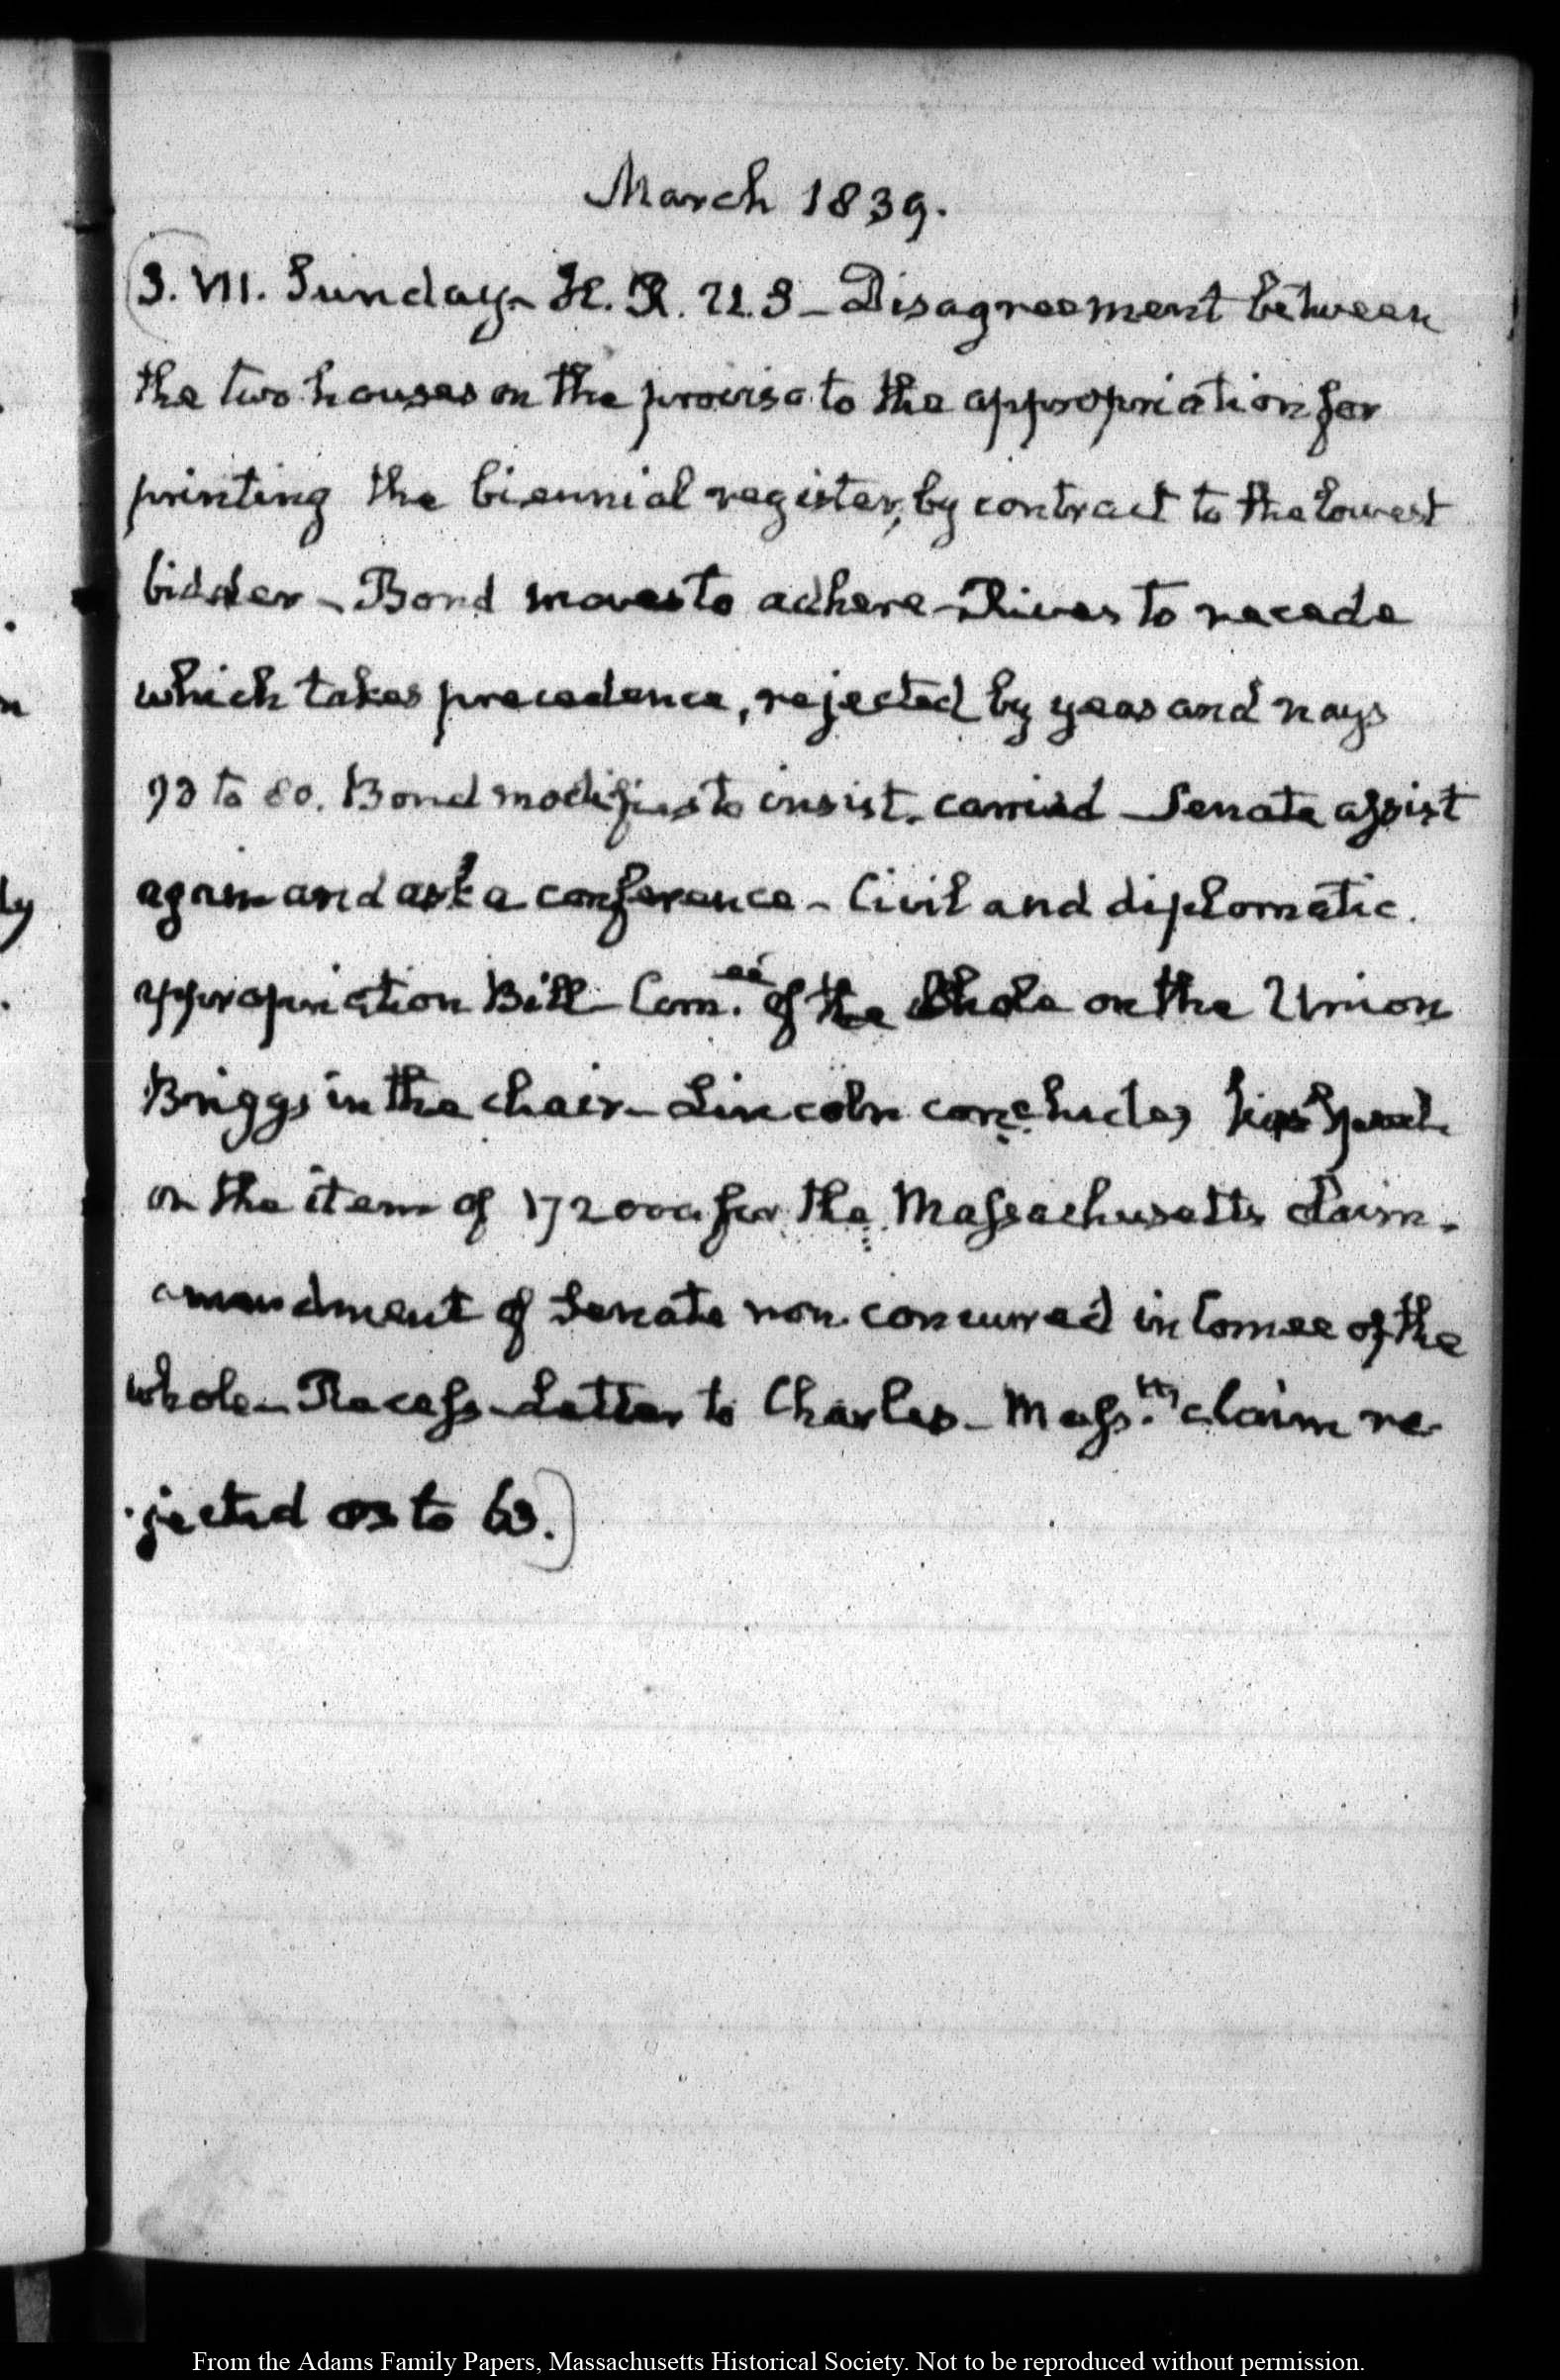 March 1839.
3. VII. Sunday- H. R. U.S – Disagreement between
the two houses on the proviso to the appropriation for
printing the biennial register, by contract to the lowest
bidder – Bond moves to adhere – Rives to recede
which takes precedence, rejected by yeas and nays
to 80. Bond modifies to insist. carried – Senate assist
again and ask a conference – Civil and diplomatic.
appropriation Bill – Com.ee of the Whole on the Union
Briggs in the chair – Lincoln concludes his Speech
on the item of 172000 for the Massachusetts claim.
amendment of Senate non. concurred in Comee of the
whole – Recess – Letter to Charles – Mass.tts claim re
jected to 63.)
ly
From the Adams Family Papers, Massachusetts Historical Society. Not to be reproduced without permission.